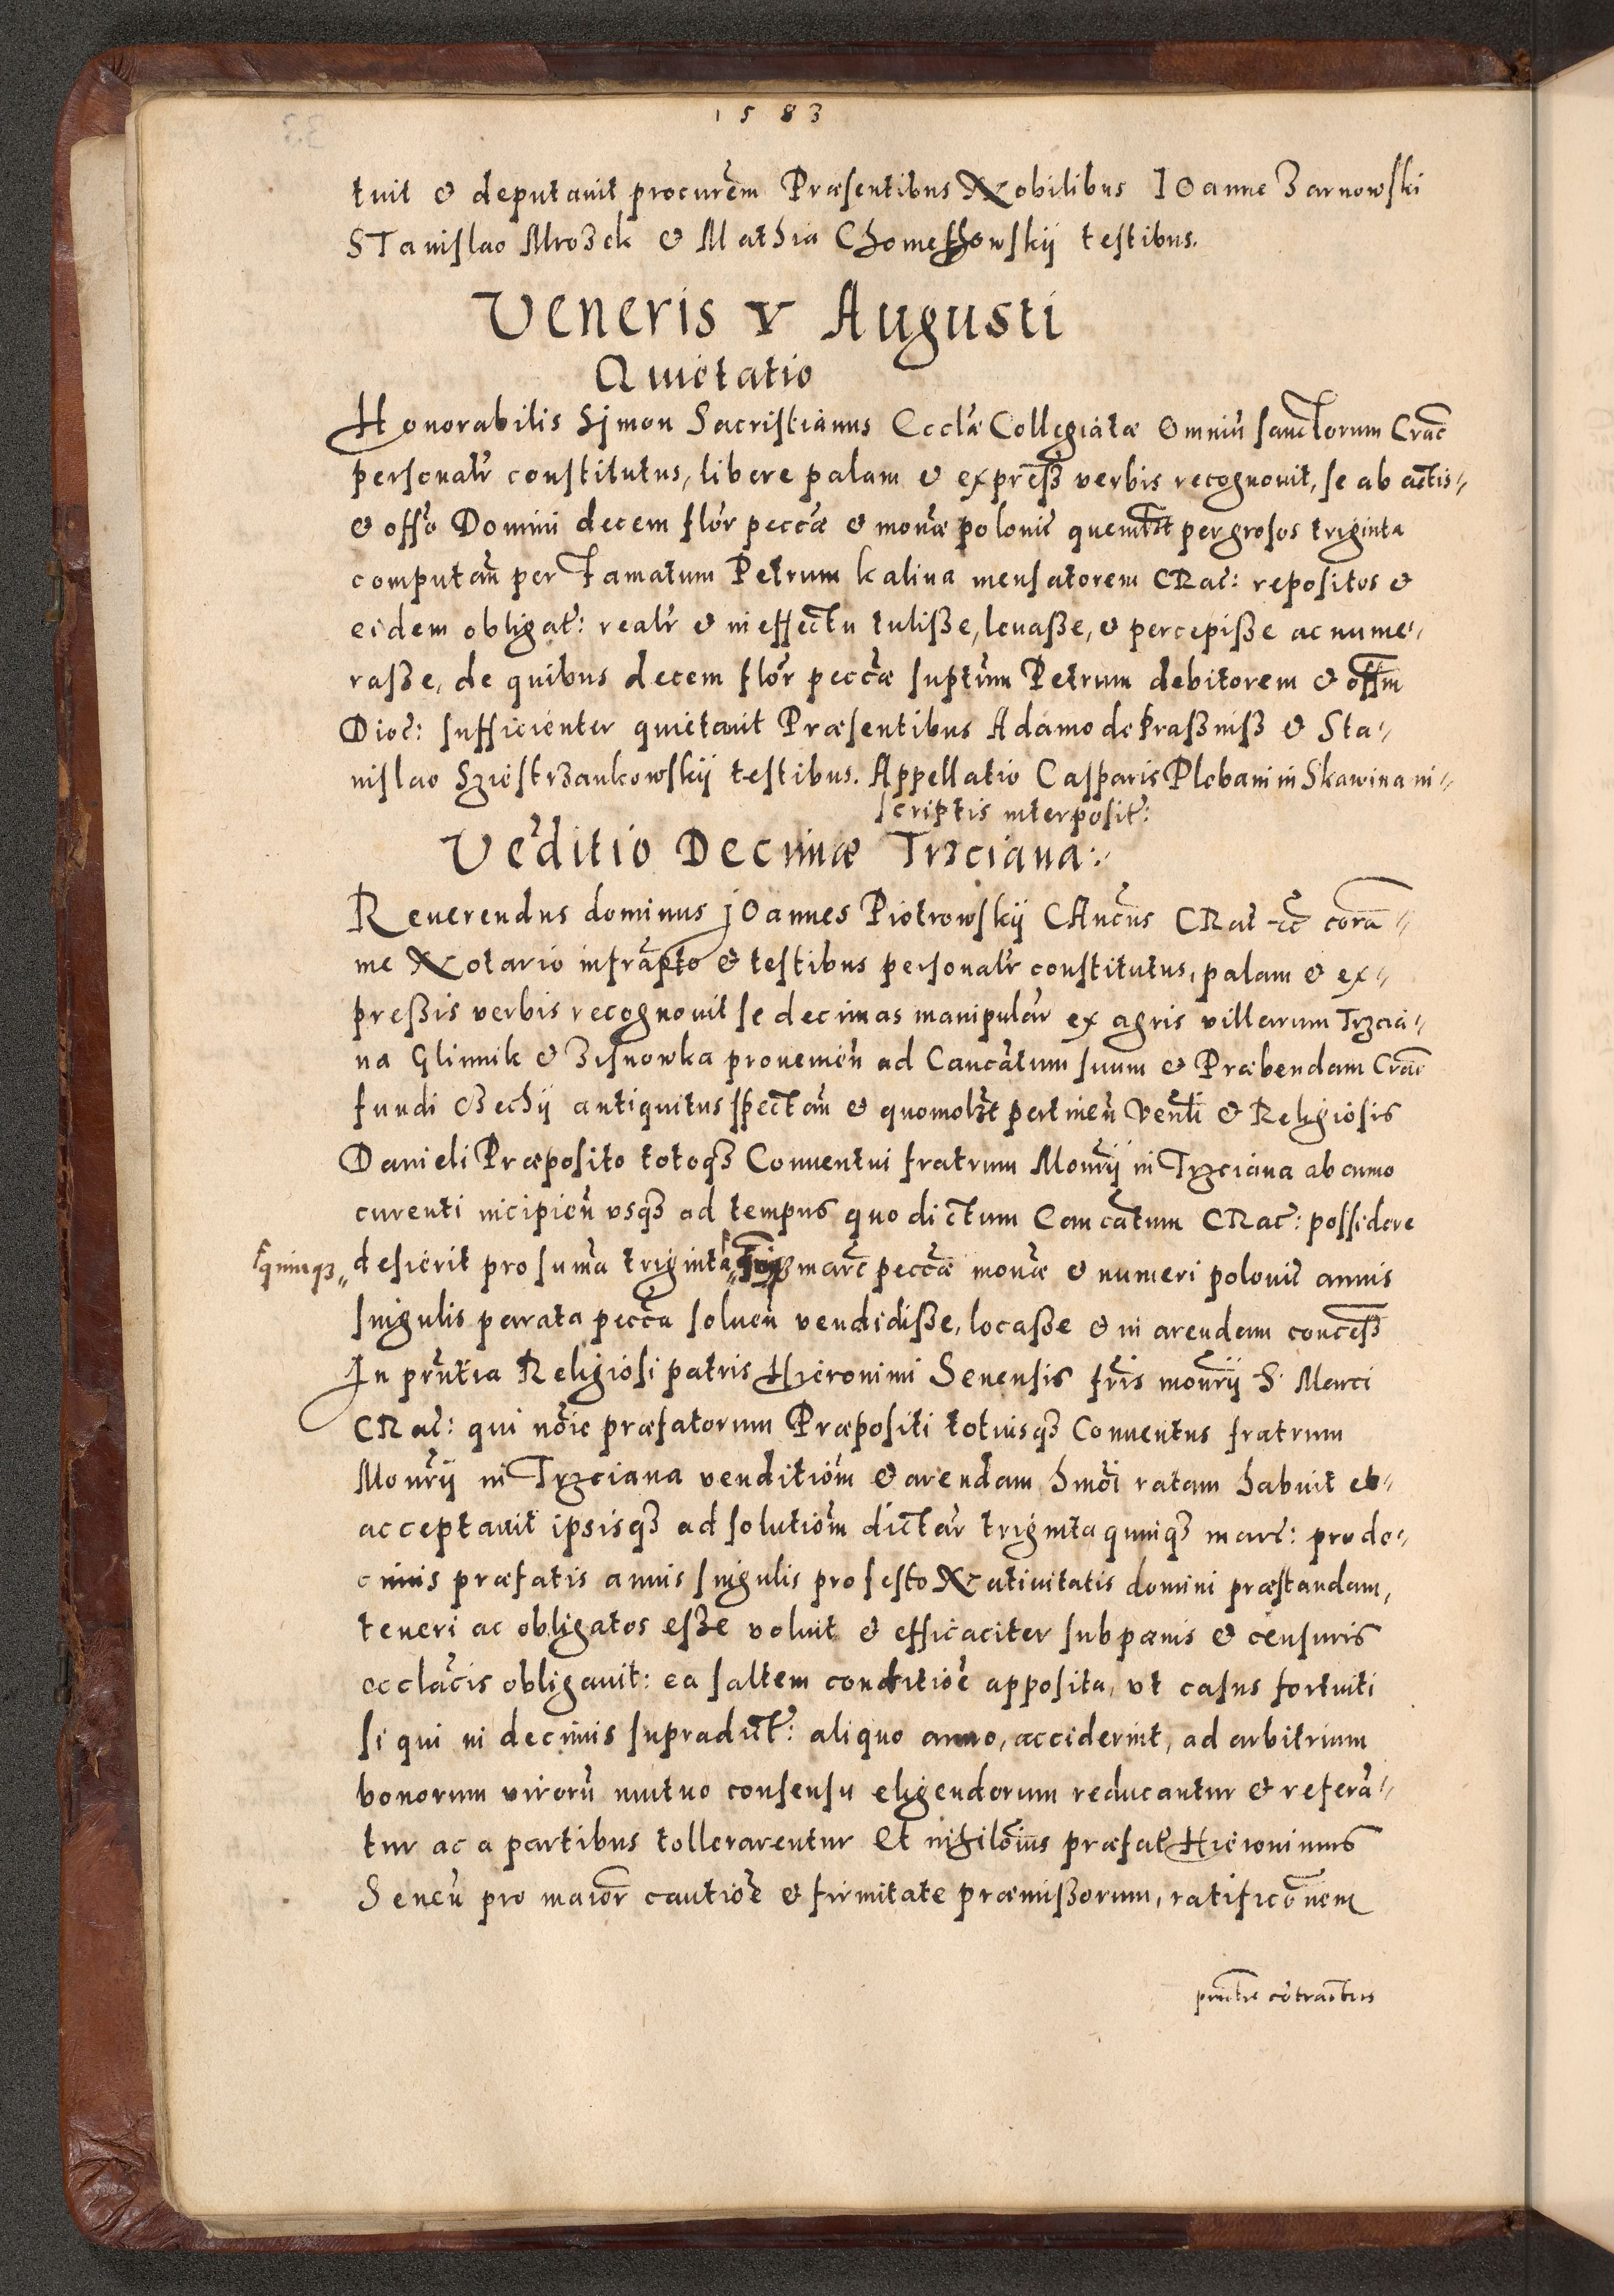 1583
tuit & deputavit procurem̃ Præsentibus Nobilibus IOanne Zarnowski
STanislao Mrozek & Mathia Chomethowskij testibus.
Veneris V Augusti
Quietatio
Honorabilis Simon Sacristianus Eccl̃æ Collegiatæ Omniũ sanctorum Crac̃
personalr̃ constitutus, libere palam & expreß̃ verbis recognovit, se ab actis
& offo̊ Domini decem flor̃ pecc̃æ & mon̂æ polonic̃ quemlt̃ pergrosos triginta
computañ per Famatum Petrum kalina mensatorem CRac̃: repositos &
eidem obligat̃: realr̃ & in effectu tuliße, levaße, & percepiße ac nume-
raße, de quibus decem flor̃ pecc̃æ supt̃um Petrum debitorem & offm̃
Dioc̃: sufficienter quietavit Præsentibus Adamo de Praßniß & Sta-
nislao Sziestrzankowskij testibus. Appellatio Casparis Plebani in Skawina in-
scriptis interposit̃:
Veñditio Decimæ Trzciana:
Reverendus dominus jOannes Piotrowskij CAnc̃us CRac̃ &c̃ corã
me Notario infrãpto & testibus personalr̃ constitutus, palam & ex-
preßis verbis recognovit se decimas manipular̃ ex agris villarum Trzcia-
na Glinnik & Bisnowka proveniẽn ad Cancãtum suum & Præbendam Crac̃
fundi Bechij antiquitus spectañ & quomolzt̃ pertineñ Venli̊ & Religiosis
Danieli Præposito totoqз Conventui fratrum Monrij̃ in Trzciana ab anno
curenti incipieñ usqз ad tempus quo dictum Cancãtum CRac̃: possidere
quinqз
desierit pro suma̅ triginta marc̃ pecc̃æ mon̂æ & numeri polonic̃ annis
singulis parata pecc̃a solveñ vendidiße, locaße & in arendam conceß̃
In prñtia Religiosi patris Hieronimi Senensis fris̃ monrij̃ S. Marci
CRac̃: qui noı̃e præfatorum Præpositi totiusqз Conventus fratrum
Monrij̃ in Trzciana venditiom̃ & arendam hmoı̃ ratam habuit et
acceptavit ipsisqз ad solutiom̃ dictar̃ triginta quinqз marc̃: pro de-
cimis præfatis annis singulis pro festo Nativitatis domini præstandam,
teneri ac obligatos eße voluit & efficaciter sub pænis & censuris
ecclãcis obligavit: ea saltem conditioẽ apposita, ut casus fortuiti
si qui in decimis supradict̃: aliquo anno, acciderint, ad arbitrium
bonorum virorũ mutuo consensu eligendorum reducantur & referã-
tur ac a partibus tollerarentur Et nihilõius præfat̃ Hieronimus
Seneñ pro maior̃ cautioẽ & firmitate præmißorum, ratificõnem
prñtis cõtractus